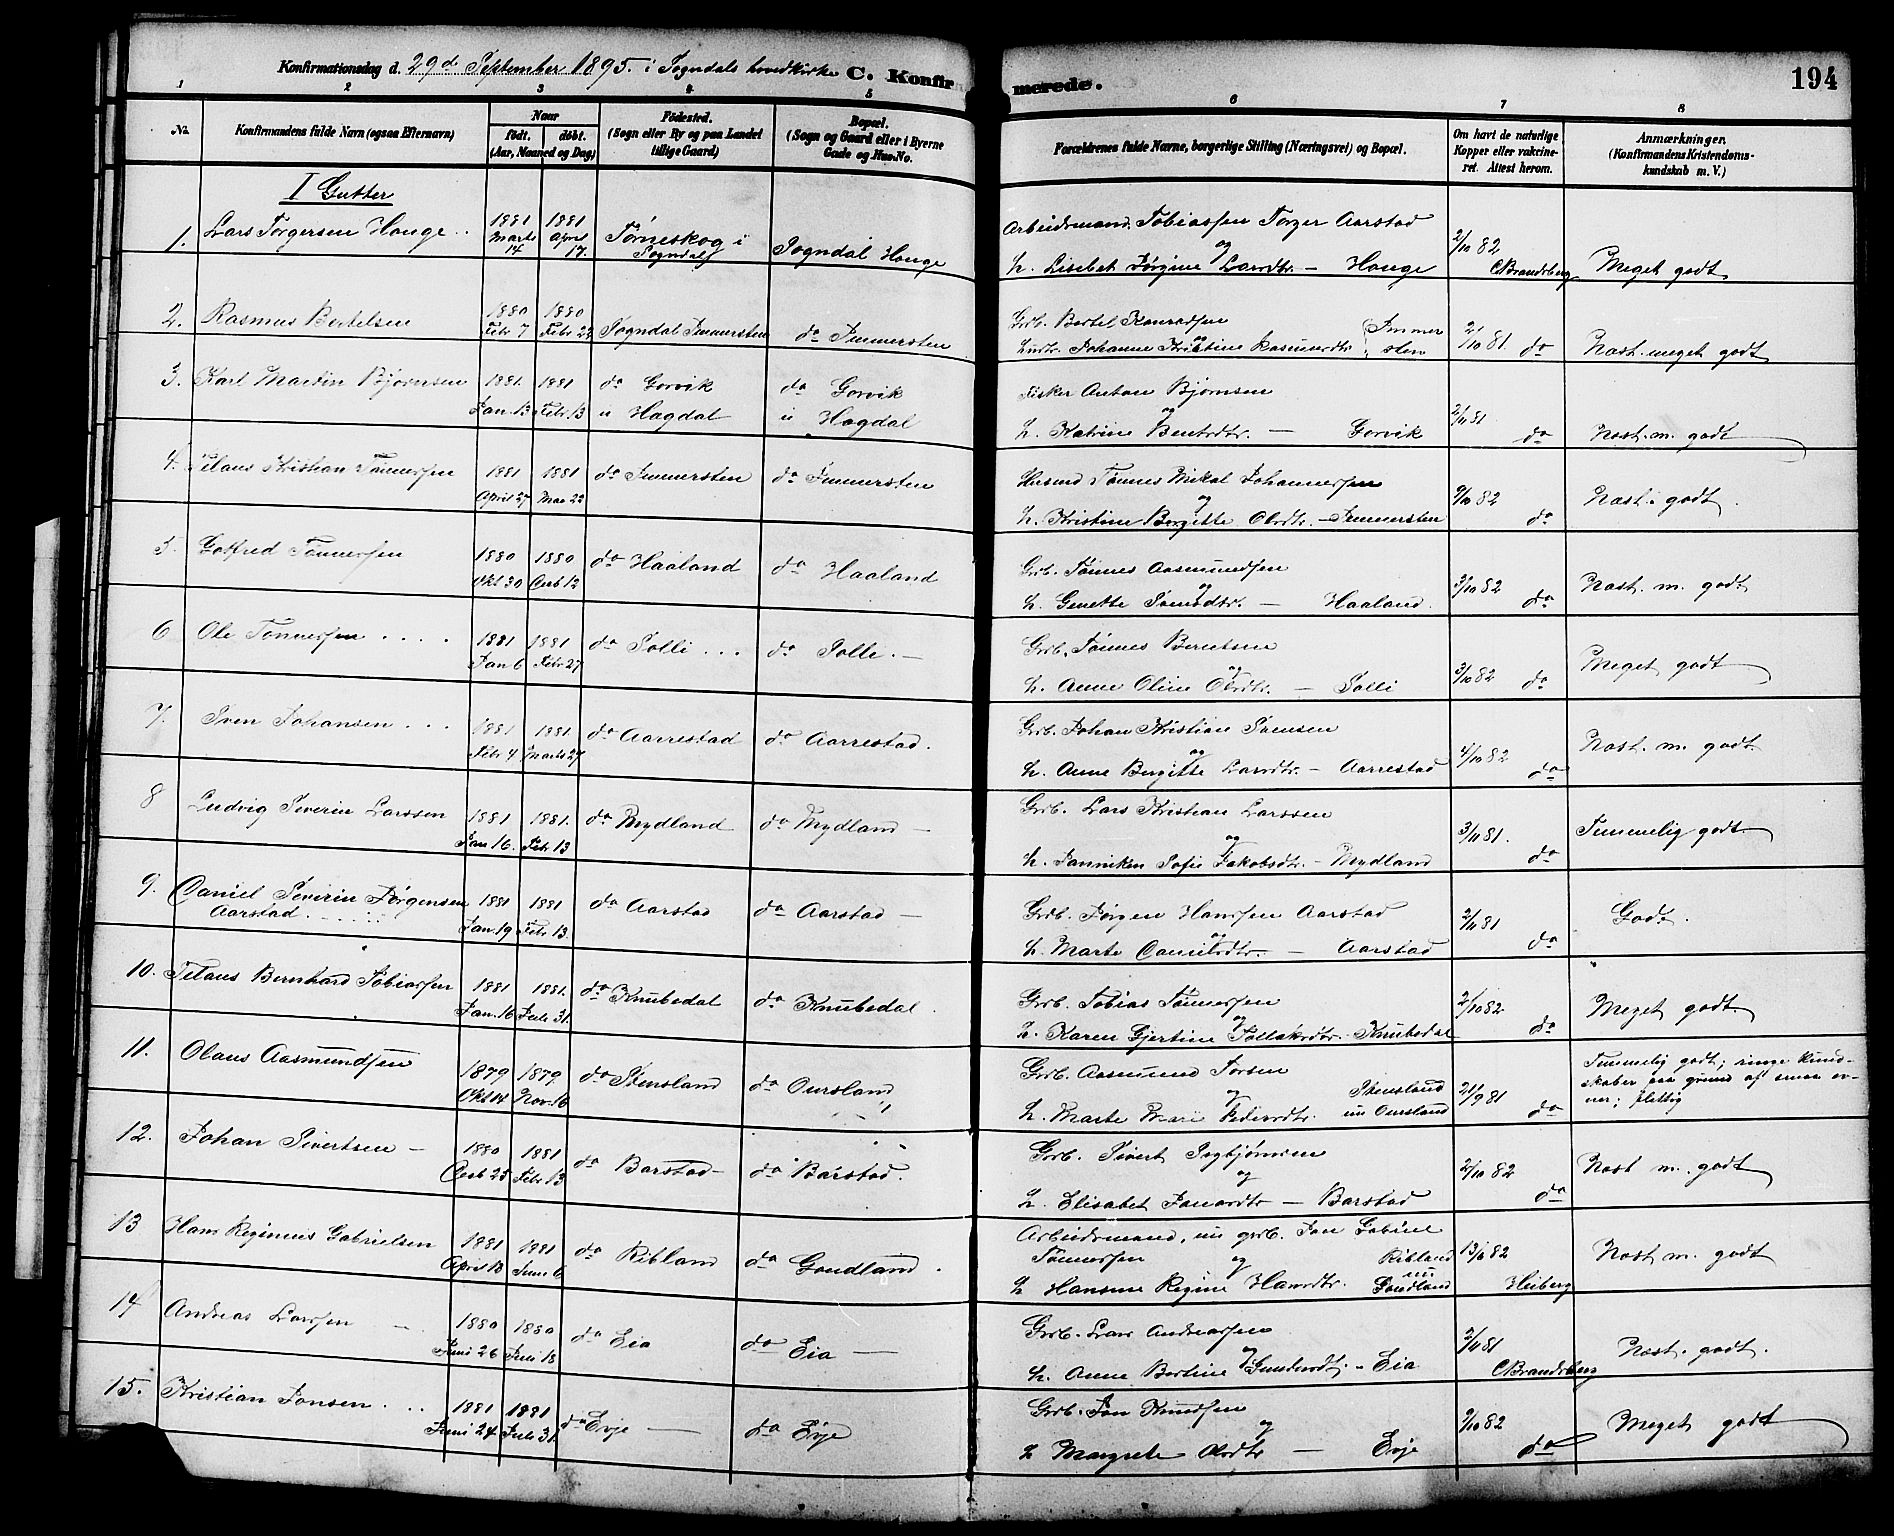 Konfirmationsdag d. 29d September 1895. i Sogndals hovedkirke C. Konfir merede. 194
1 2 3 4 5 6 7 8
No.
Konfirmandens fulde Navn (ogsaa Efternavn)
Naar
født. døbt.
(Aar, Maaned og Dag)
Fødested.
(Sogn eller By og paa Landet
tillige Gaard)
Bopæl.
(Sogn og Gaard eller i Byerne
Gade og Hus-No.
Forældrenes fulde Navne, borgerlige Stilling (Næringsvei) og Bopæl.
Om havt de naturlige
Kopper eller vakcine-
ret. Attest herom.
Anmærkninger.
(Konfirmandens Kristendoms-
kundskab m. V.)
I Gutter
1. Lars Torgersen Hauge 1881 Marts 14 1881 April 17. Tørneskog i Sogndal Sogndal Hauge
Arbeidsmand Tobiassen Torger Aarstad
og
h. Lisebet Jørgine Larsdtr. – Hauge 2/10 82 C Brandsberg Meget godt
2. Rasmus Bertelsen 1880 Febr 7 1880 Febr 22 Sogndal Immersten do Immersten
Grb. Bertel Konradsen
og
hustr. Johanne Kristine Rasmusdtr. Immersten 2/10 81. do Nast. meget godt
3. Karl Martin Bjørnsen 1881. Jan. 13 1881 Febr. 13 do Gorvik u Hagdal do Gorvik u Hagdal
Fisker Anton Bjørnsen
og
h. Katrine Berntsdtr. – Gorvik 2/11 81 do Nast. m. godt
4. Telaus Kristian Tønnessen 1881 April 27 1881 Mai 22 do Immersten do Immersten
Husmd Tønnes Mikal Johannessen
og
h. Kristine Bergitte Olsdtr. – Immersten 9/10 82 do Nast. godt.
5. Gotfred Tønnessen 1880 Okt 30 1880 Decb 12 do Haaland do Haaland
Grb. Tønnes Aasmundsen
og
h. Genette Svensdtr. – Haaland. 3/10 82 do Nast. m. godt
6 Ole Tønnessen 1881 Jan 6 1881 Febr. 27 do Solli do Solli. –
Grb. Tønnes Berntsen
og
h. Anne Oline Olsdtr. – Solli 3/10 82 do Meget godt
7. Sven Johansen 1881 Febr 4 1881. Marts 27 do Aarrestad do Aarrestad.
Grb. Johan Kristian Svensen
og
h. Anne Bergitte Larsdtr. – Aarrestad 4/10 82 do Nast. m. godt.
8 Ludvig Severin Larssen 1881 Jan 16. 1881. Febr. 13 do Mydland do Mydland –
Grb. Lars Kristian Larssen
og
h. Janniken Sofie Jakobsdtr. – Mydland 3/11 81. do Temmelig godt.
9. Daniel Severin Jørgensen
Aarstad. 1881 Jan. 19 1881 Febr. 13. do Aarstad do Aarstad –
Grb. Jørgen Hanssen Aarstad
og
h. Marte Danielsdtr. – Aarstad 2/11 81 do Godt.
10. Telaus Bernhard Tobiassen 1881 Jan. 16 1881. Juli 31. do Knubedal do Knubedal.
Grb. Tobias Tønnessen
og
h. Karen Gjertine Tollaksdtr. Knubedal 2/10 82 do Meget godt.
11. Olaus Aasmundsen 1879 Okt 14 1879. Nov. 16 do Stensland do Oursland
Grb. Aasmund Torsen
og
h. Marte Marie Pedersdtr. Stensland nu Oursland 21/9 81 do Temmelig godt; ringe kund-
skaber paa grund af smaa ev-
ner; flittig
12. Johan Sivertsen – 1880 Decb 25 1881 Febr. 13 do Barstad – do Barstad.
Grb. Sivert Sigbjørnsen
og
h. Elisabet Jonasdtr – Barstad 2/10 82 do Nast m. godt
13 Hans Reginius Gabrielsen 1881 April 13 1881 Juni 6 do Ribland do Goudland.
Arbeidsmand, nu grb. Jan Gabriel
Tønnessen og Ribland nu
h Hansine Regine Hansdtr. Goudland 13/6 82 Heiberg Nast m. godt
14 Andreas Larssen – 1880 Juni 26 1880 Juli 18 do Eia do Eia –
Grb. Lars Andreassen
og
h. Anne Bertine Gundersdt. – Eia 2/11 81 C Brandsberg Nast. godt.
15. Kristian Jonsen 1881 Juni 24 1881 Juli 31. do Evje – do Evje
Grb. Jon Knudsen
og
h Margrete Olsdtr – Evje 9/10 82 do Meget godt